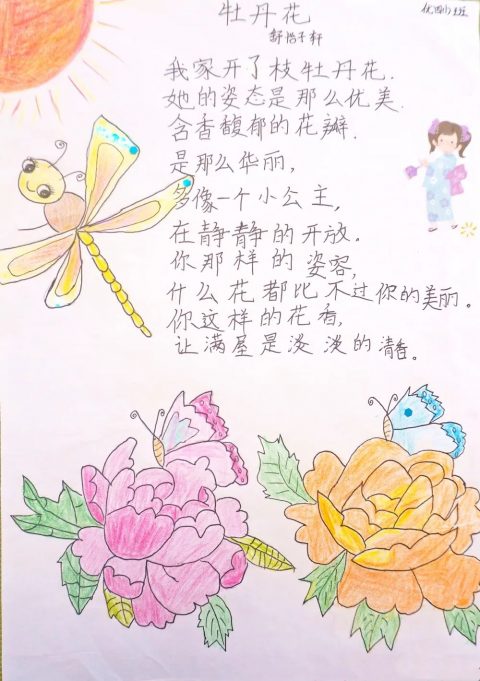 牡丹花
我家开了枝牡丹花.
她的姿态是那么优美.
含香馥郁的花瓣.
是那么华丽,
多像一个小公主,
在静静的开放。
你那样的姿容,
什么花都比不过你的美丽。
你这样的花香,
让满屋是淡淡的清香。